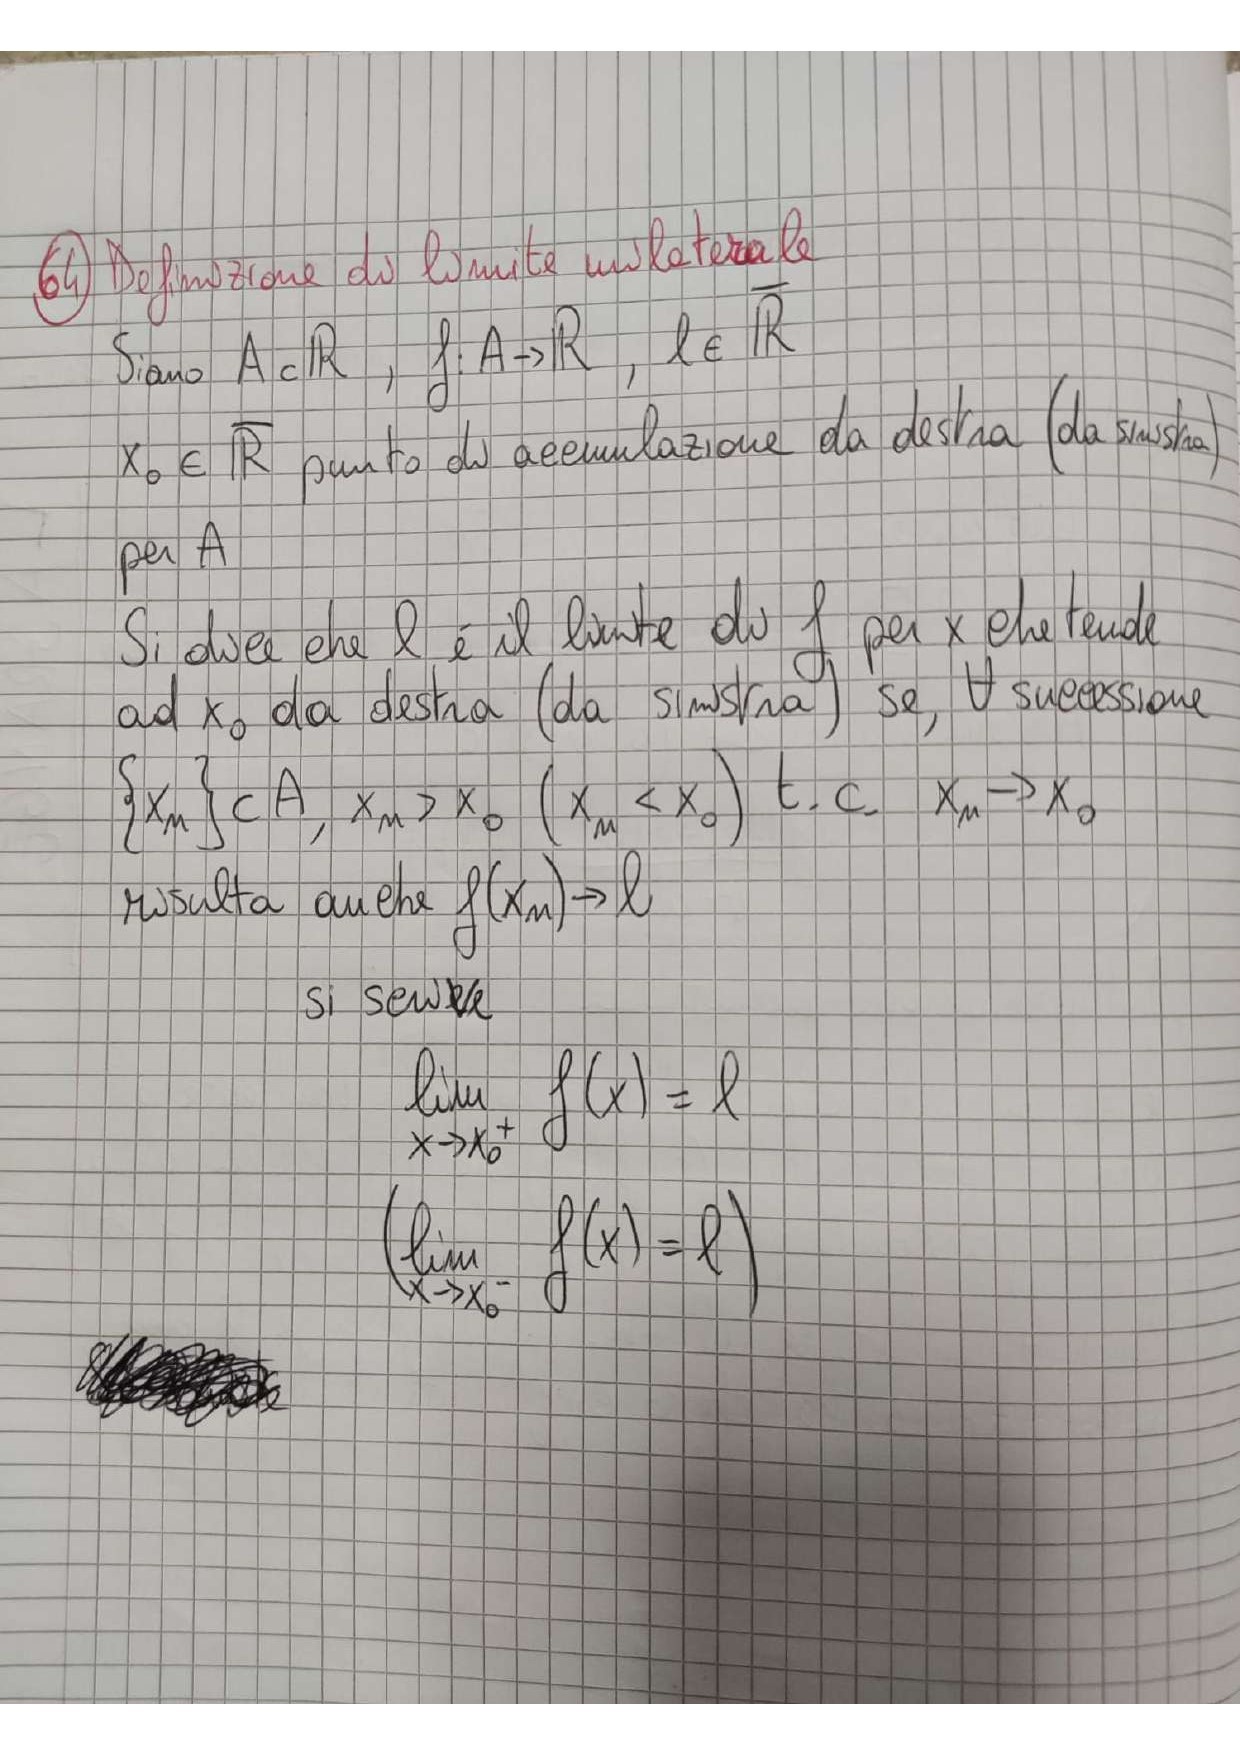 64) Definizione di limite unilaterale
Siano A ⊂ ℝ , f: A → ℝ , l ∈ ℝ̅
x₀ ∈ ℝ̅ punto di accumulazione da destra (da sinistra)
per A
Si dice che l è il limite di f per x che tende
ad x₀ da destra (da sinistra) se, ∀ successione
{xₙ} ⊂ A, xₙ > x₀ (xₙ < x₀) t.c. xₙ → x₀
risulta anche f(xₙ) → l
si scrive
lim f(x) = l
x→x₀⁺
(lim f(x) = l)
x→x₀⁻